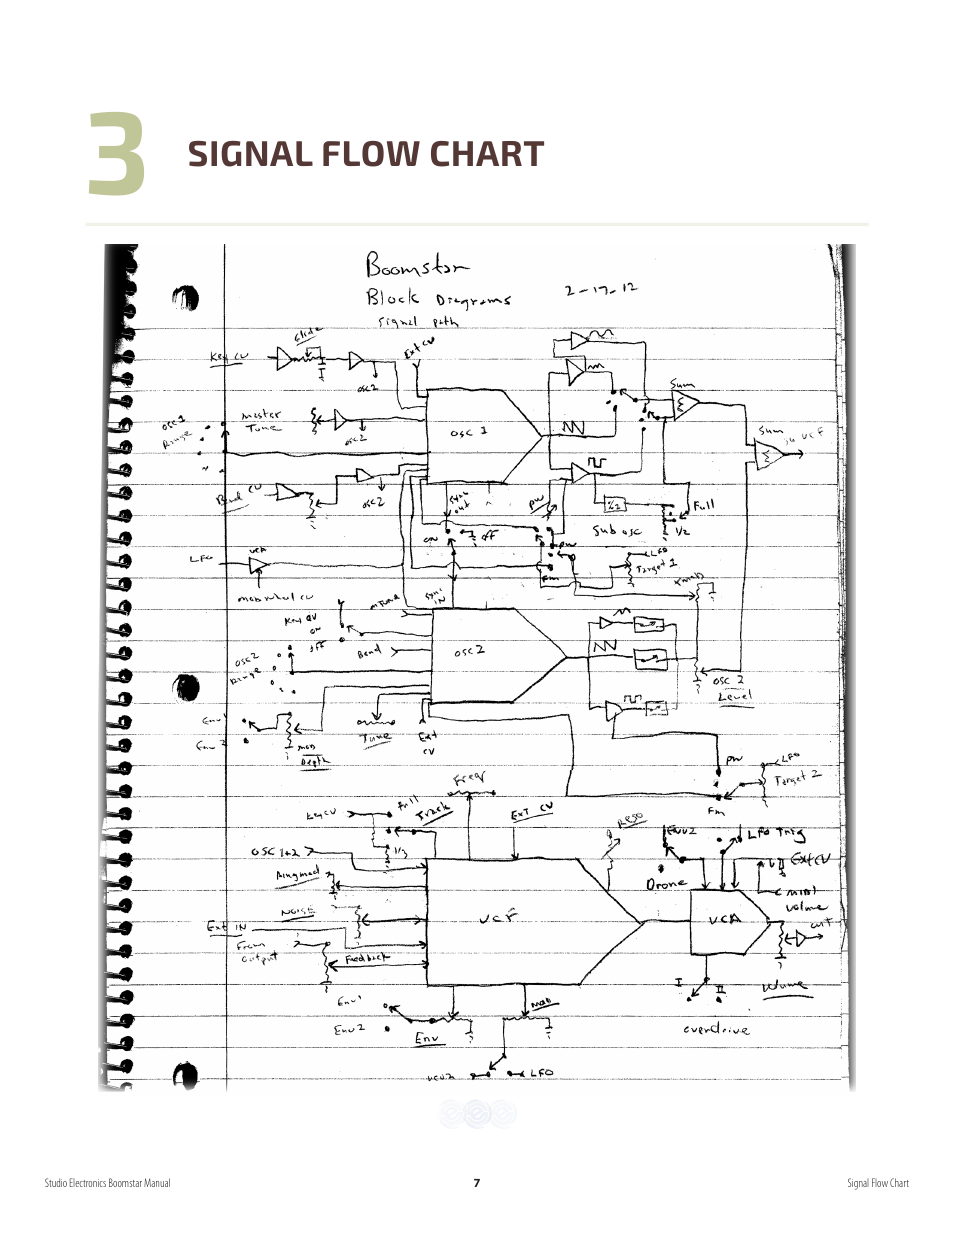 3
SIGNAL FLOW CHART
Boomstar
Block Diagrams
2-17-12
Signal path
Glide
Key CV
Ext CV
osc2
Sum
osc1
Range
Master
Tune
osc2
OSC 1
Sum
to VCF
Bend CV
osc2
Sync
out
PW
1/2
Full
1/2
Sub osc
ON
off
PW
LFO
Target 1
Fm
LFO
VCA
mod wheel CV
Xmod
Sync
IN
Key CV
ON
off
OSC2
Range
Bend
OSC2
OSC 2
Level
Env1
Env 2
mod
Depth
Tune
Ext
CV
PW
LFO
Target 2
Fm
Freq
Key CV
Full
Track
1/3
EXT CV
Reso
Env2
LFO Trig
OSC 1+2
Ringmod
Drone
Ext CV
MIDI
Volume
NOISE
VCF
VCA
out
Ext IN
From
output
Feedback
I
II
Volume
Env1
Mod
Env2
Env
overdrive
LFO
Studio Electronics Boomstar Manual
7
Signal Flow Chart